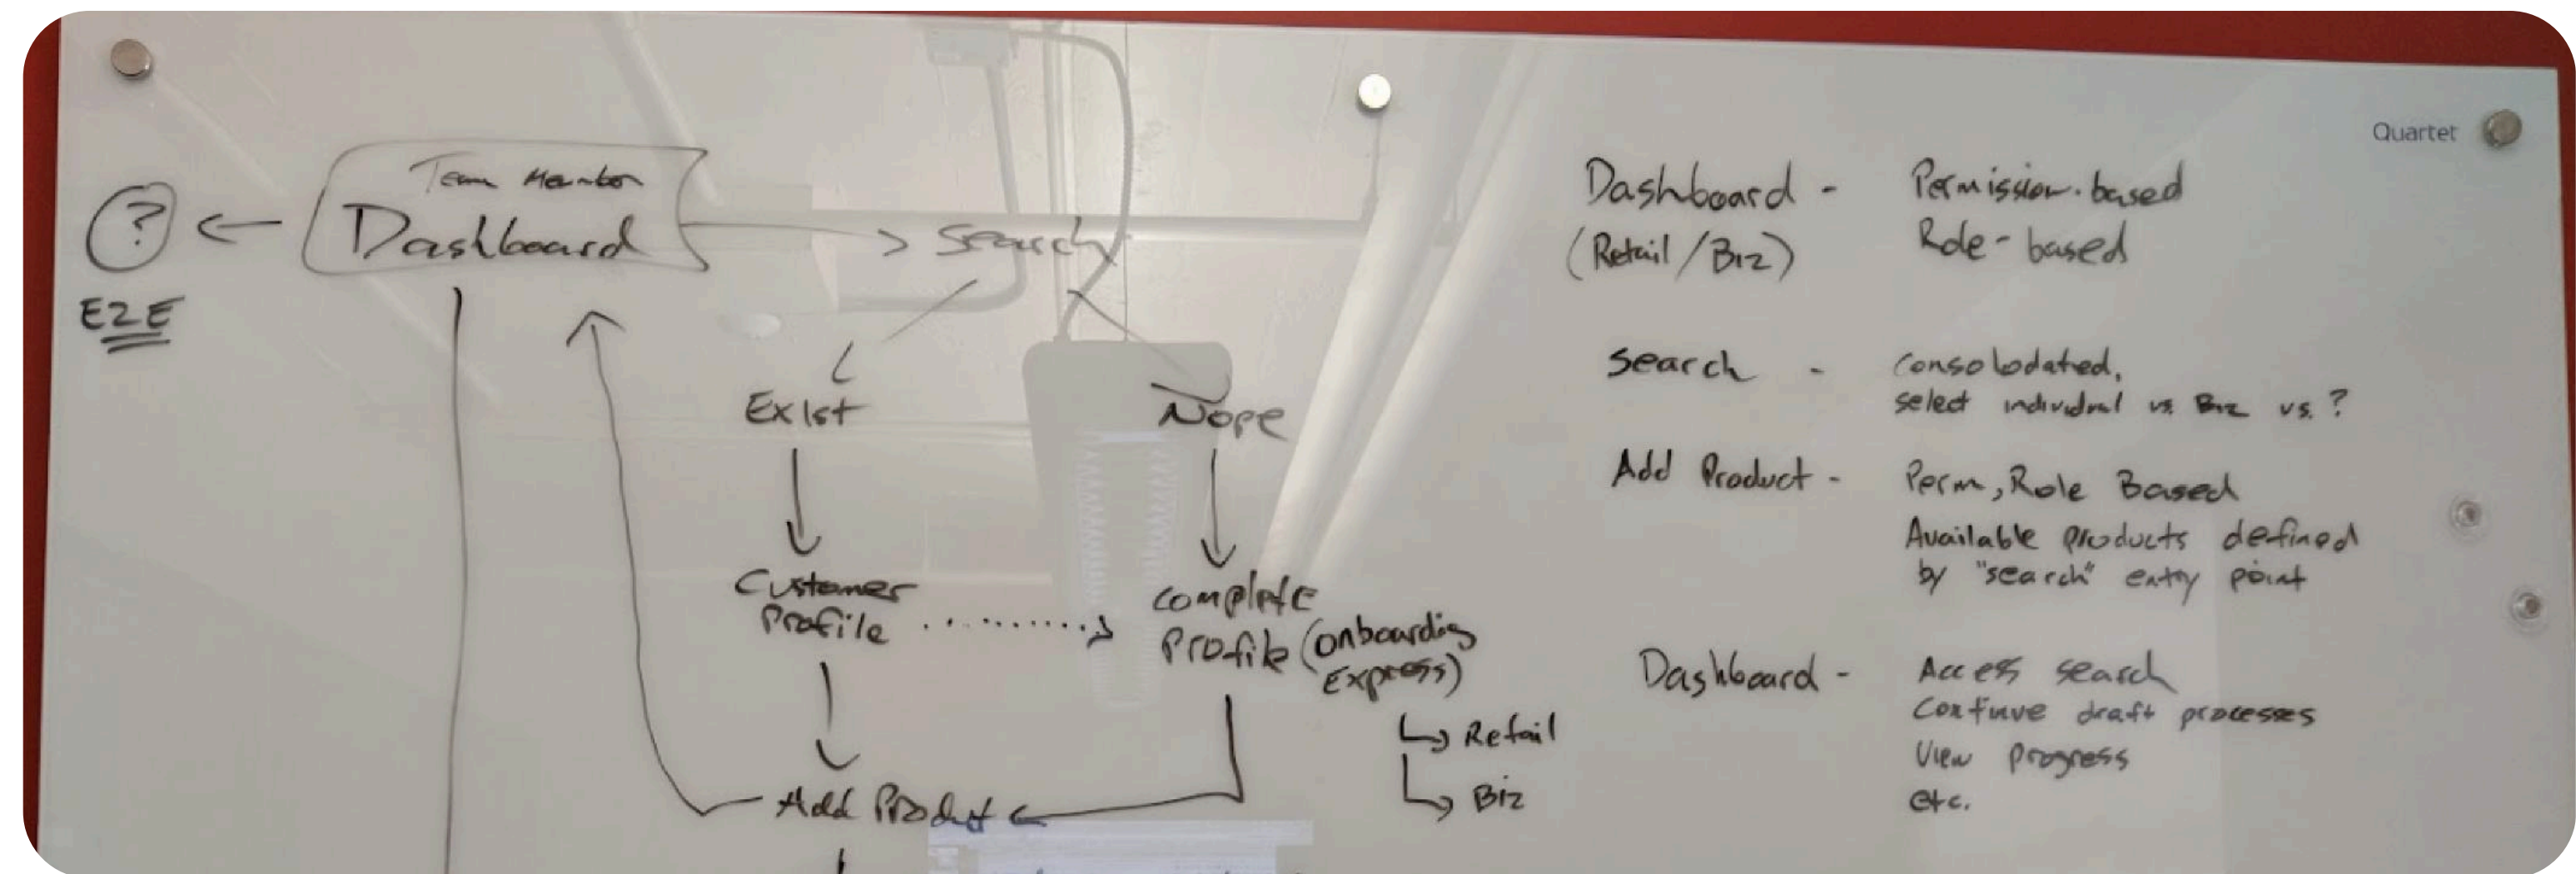 Quartet
Team Member
Dashboard
?
E2E
Search
Exist
Nope
Customer
Profile
Complete
Profile (Onboarding
Express)
Retail
Biz
Add Product
Dashboard - Permission-based
(Retail/Biz) Role-based
Search - Consolodated,
select individual vs. Biz vs. ?
Add Product - Perm, Role Based
Available products defined
by "search" entry point
Dashboard - Access search
Continue draft processes
View progress
etc.